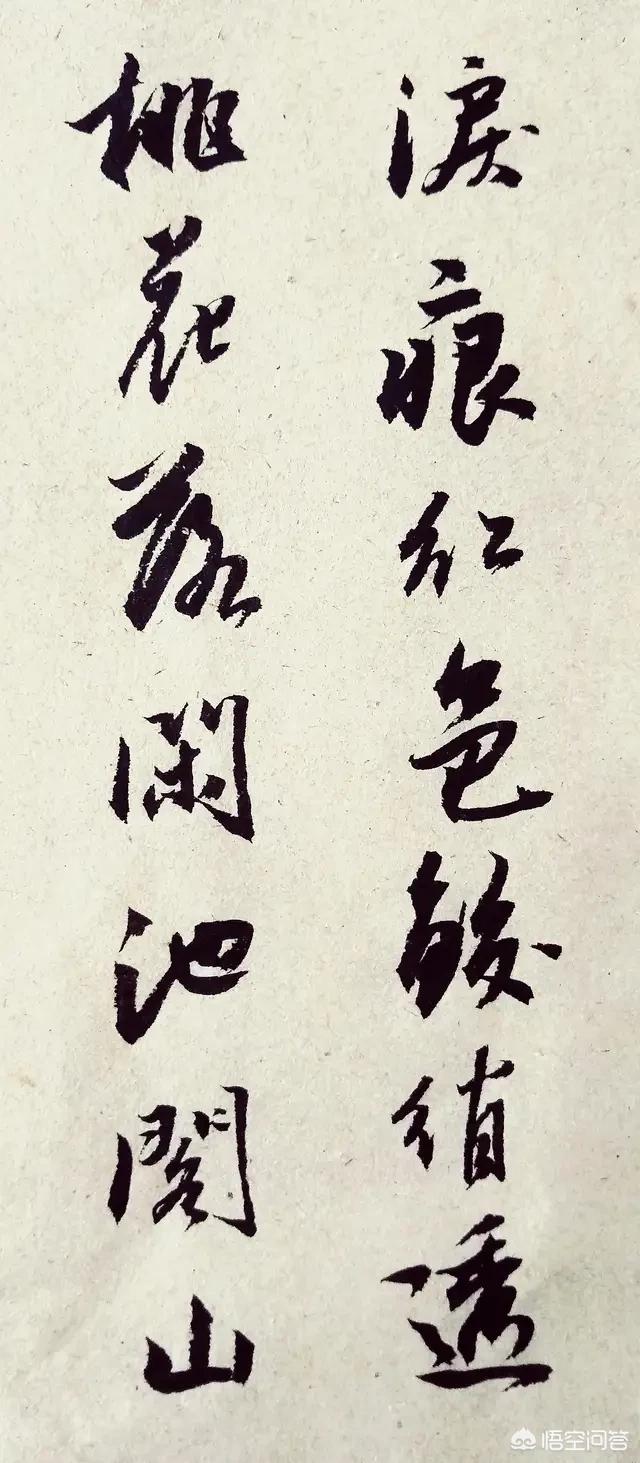 淚痕紅色鮫綃透
桃花落閑池閣山
悟空问答